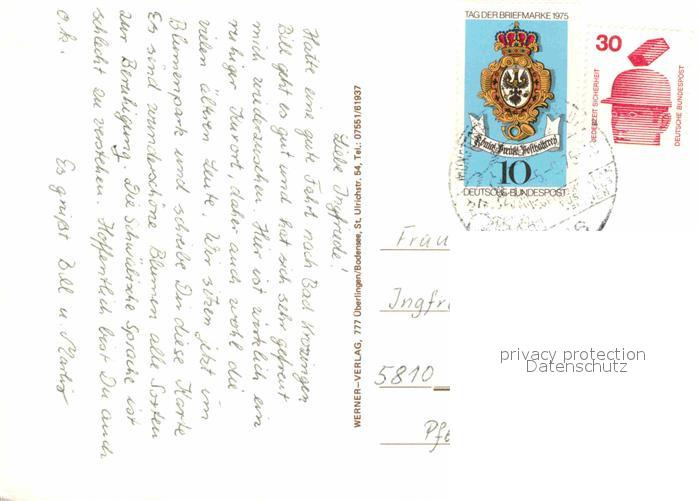 Liebe Ingfriede!
Hatte eine gute Fahrt nach Bad Krozingen
Bill geht es gut und hat sich sehr gefreut
mich wiederzusehen. Hier ist wirklich ein
ruhiger Kurort, daher auch wohl die
vielen älteren Leute. Wir sitzen jetzt im
Blumenpark und schreibe Dir diese Karte
Es sind wunderschöne Blumen alle Sorten
zur Beruhigung. Die Schwäbische Sprache ist
schlecht zu verstehen. Hoffentlich bist Du auch
o.k. Es grüßt Bill u.
WERNER-VERLAG, 777 Überlingen/Bodensee, St. Ulrichstr. 54, Tel.: 07551/61937
TAG DER BRIEFMARKE 1975
Königl. Preuß. Posthalterei
10
DEUTSCHE BUNDESPOST
30
JEDERZEIT SICHERHEIT
DEUTSCHE BUNDESPOST
Frau
Ingfri
5810
Pfe
privacy protection
Datenschutz